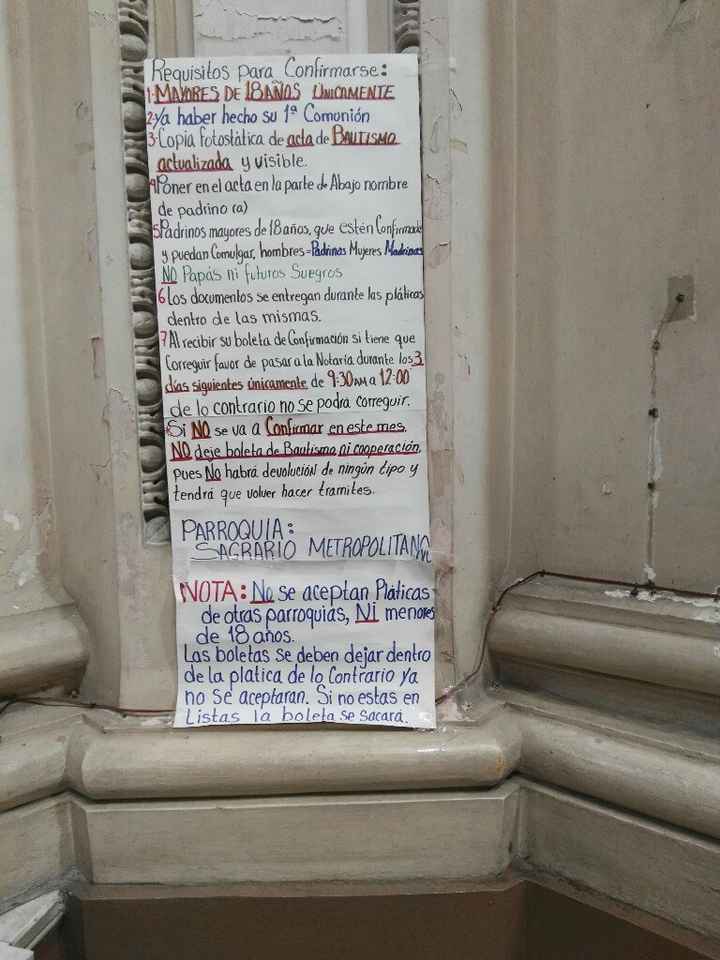 Requisitos para Confirmarse:
1-MAYORES DE 18 AÑOS ÚNICAMENTE
2-Ya haber hecho su 1ª Comunión
3-Copia fotostática de acta de BAUTISMO
actualizada y visible.
4Poner en el acta en la parte de Abajo nombre
de padrino (a)
5Padrinos mayores de 18 años, que estén Confirmado
y puedan Comulgar, hombres=Padrinos Mujeres Madrinas
NO Papás ni futuros Suegros
6Los documentos se entregan durante las pláticas
dentro de las mismas.
7Al recibir su boleta de Confirmación si tiene que
Correguir favor de pasar a la Notaría durante los 3
días siguientes únicamente de 9:30 AM a 12:00
de lo contrario no se podrá correguir.
Si NO se va a Confirmar en este mes,
NO deje boleta de Bautismo ni cooperación,
pues NO habrá devolución de ningún tipo y
tendrá que volver hacer tramites.
PARROQUIA:
SAGRARIO METROPOLITANO
NOTA: No se aceptan Platicas
de otras parroquias, NI menores
de 18 años.
Las boletas se deben dejar dentro
de la platica de lo Contrario Ya
no se aceptaran. Si no estas en
Listas la boleta se sacará.